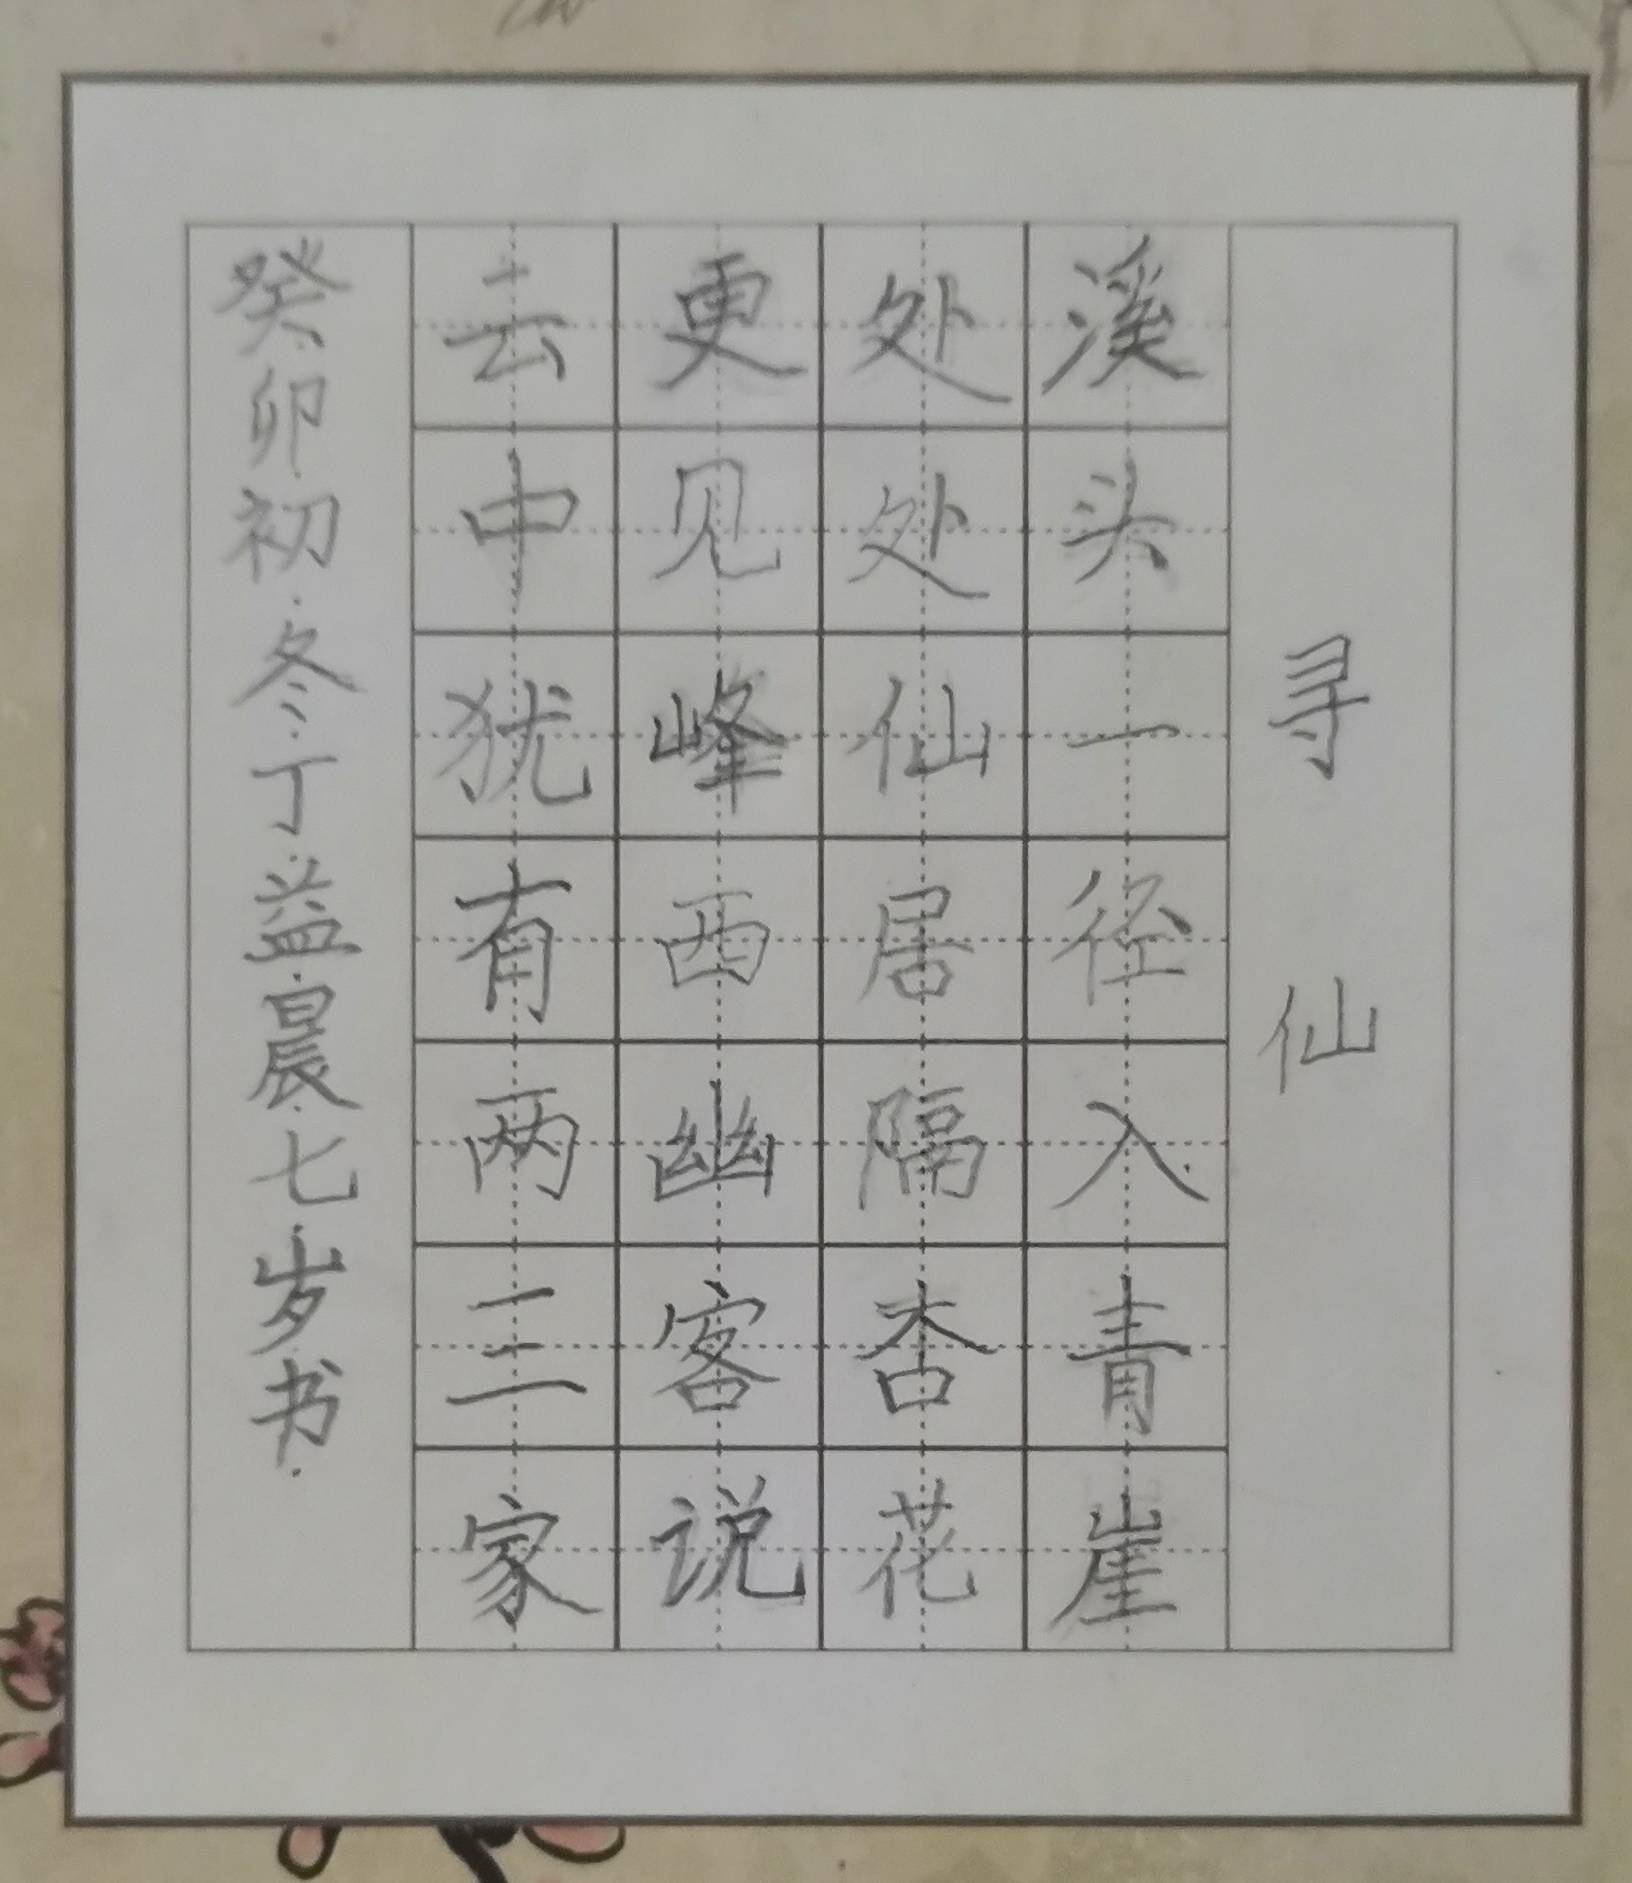 寻仙
溪头一径入青崖
处处仙居隔杏花
更见峰西幽客说
云中犹有两三家
癸卯初冬丁益晨七岁书